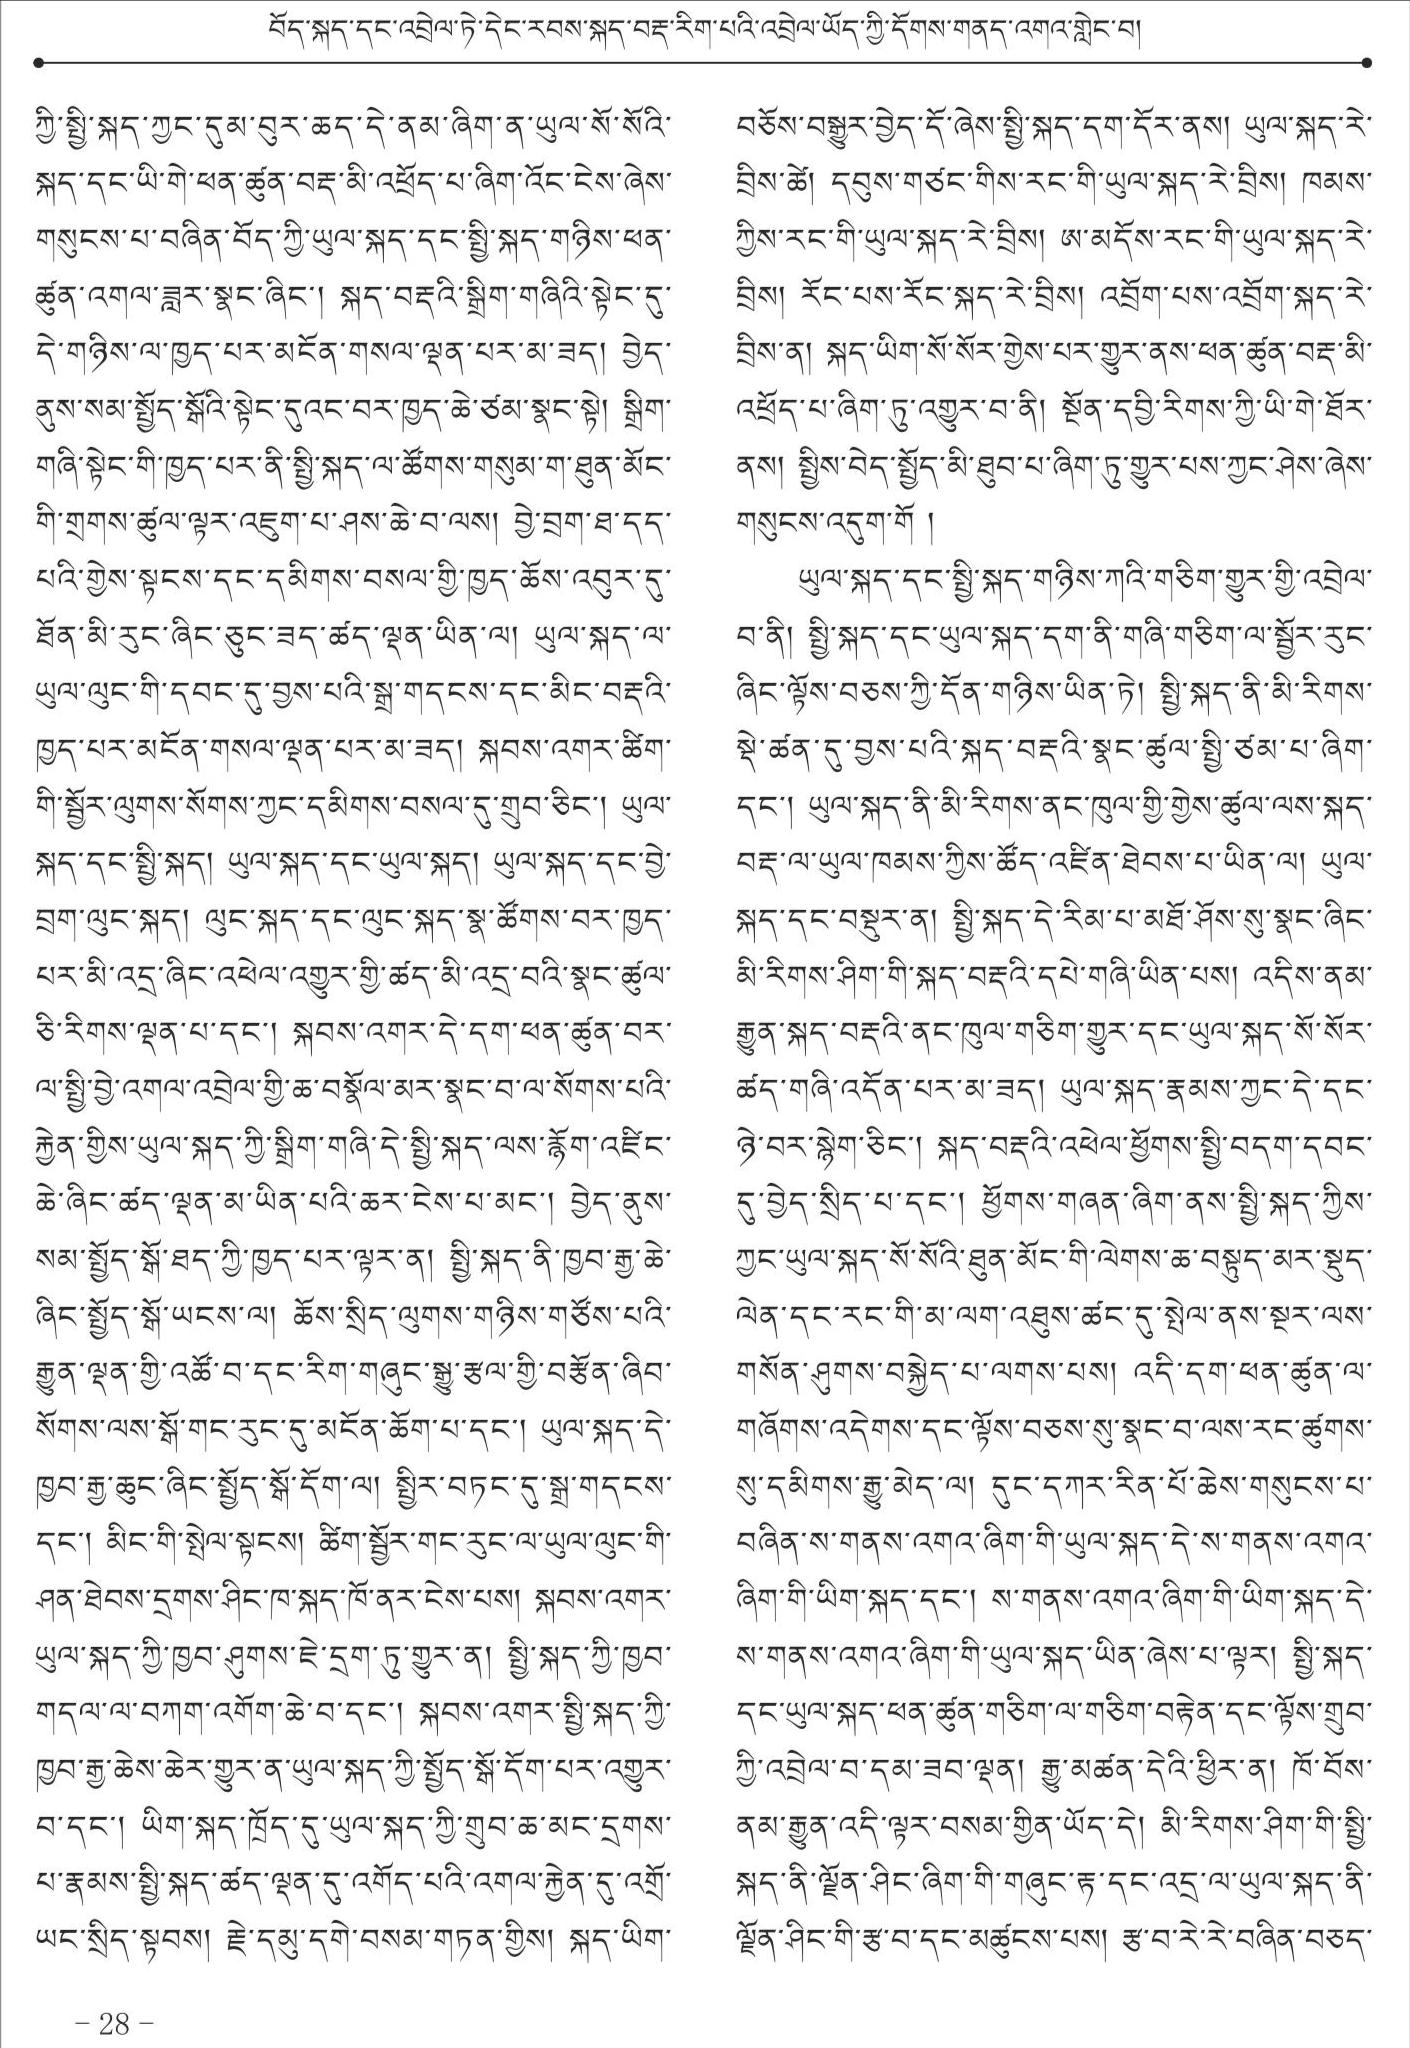 བོད་སྐད་དང་འབྲེལ་ཏེ་དེང་རབས་སྐད་བརྡ་རིག་པའི་འབྲེལ་ཡོད་ཀྱི་དོགས་གནད་འགའ་གླེང་བ།
ཀྱི་སྤྱི་སྐད་ཀྱང་དུམ་བུར་ཆད་དེ་ནམ་ཞིག་ན་ཡུལ་སོ་སོའི་
སྐད་དང་ཡི་གེ་ཕན་ཚུན་བརྡ་མི་འཕྲོད་པ་ཞིག་འོང་ངེས་ཞེས་
གསུངས་པ་བཞིན་བོད་ཀྱི་ཡུལ་སྐད་དང་སྤྱི་སྐད་གཉིས་ཕན་
ཚུན་འགལ་ཟླར་སྣང་ཞིང་། སྐད་བརྡའི་སྒྲིག་གཞིའི་སྟེང་དུ་
དེ་གཉིས་ལ་ཁྱད་པར་མངོན་གསལ་ལྡན་པར་མ་ཟད། བྱེད་
ནུས་སམ་སྤྱོད་སྒོའི་སྟེང་དུའང་བར་ཁྱད་ཆེ་ཙམ་སྣང་སྟེ། སྒྲིག་
གཞི་སྟེང་གི་ཁྱད་པར་ནི་སྤྱི་སྐད་ལ་ཚོགས་གསུམ་ག་ཐུན་མོང་
གི་གྲགས་ཚུལ་ལྟར་འཇུག་པ་ཤས་ཆེ་བ་ལས། བྱེ་བྲག་ཐ་དད་
པའི་གྱེས་སྟངས་དང་དམིགས་བསལ་གྱི་ཁྱད་ཆོས་འབུར་དུ་
ཐོན་མི་རུང་ཞིང་ཅུང་ཟད་ཚད་ལྡན་ཡིན་ལ། ཡུལ་སྐད་ལ་
ཡུལ་ལུང་གི་དབང་དུ་བྱས་པའི་སྒྲ་གདངས་དང་མིང་བརྡའི་
ཁྱད་པར་མངོན་གསལ་ལྡན་པར་མ་ཟད། སྐབས་འགར་ཚིག་
གི་སྦྱོར་ལུགས་སོགས་ཀྱང་དམིགས་བསལ་དུ་གྲུབ་ཅིང་། ཡུལ་
སྐད་དང་སྤྱི་སྐད། ཡུལ་སྐད་དང་ཡུལ་སྐད། ཡུལ་སྐད་དང་བྱེ་
བྲག་ལུང་སྐད། ལུང་སྐད་དང་ལུང་སྐད་སྣ་ཚོགས་བར་ཁྱད་
པར་མི་འདྲ་ཞིང་འཕེལ་འགྱུར་གྱི་ཚད་མི་འདྲ་བའི་སྣང་ཚུལ་
ཅི་རིགས་ལྡན་པ་དང་། སྐབས་འགར་དེ་དག་ཕན་ཚུན་བར་
ལ་སྤྱི་བྱེ་འགལ་འབྲེལ་གྱི་ཆ་བསྣོལ་མར་སྣང་བ་ལ་སོགས་པའི་
རྐྱེན་གྱིས་ཡུལ་སྐད་ཀྱི་སྒྲིག་གཞི་དེ་སྤྱི་སྐད་ལས་རྙོག་འཛིང་
ཆེ་ཞིང་ཚད་ལྡན་མ་ཡིན་པའི་ཆར་ངེས་པ་མང་། བྱེད་ནུས་
སམ་སྤྱོད་སྒོ་ཐད་ཀྱི་ཁྱད་པར་ལྟར་ན། སྤྱི་སྐད་ནི་ཁྱབ་རྒྱ་ཆེ་
ཞིང་སྤྱོད་སྒོ་ཡངས་ལ། ཆོས་སྲིད་ལུགས་གཉིས་གཙོས་པའི་
རྒྱུན་ལྡན་གྱི་འཚོ་བ་དང་རིག་གཞུང་སྒྱུ་རྩལ་གྱི་བརྩོན་ཞིབ་
སོགས་ལས་སྒོ་གང་རུང་དུ་མངོན་ཆོག་པ་དང་། ཡུལ་སྐད་དེ་
ཁྱབ་རྒྱ་ཆུང་ཞིང་སྤྱོད་སྒོ་དོག་ལ། སྤྱིར་བཏང་དུ་སྒྲ་གདངས་
དང་། མིང་གི་སྤེལ་སྟངས། ཚིག་སྦྱོར་གང་རུང་ལ་ཡུལ་ལུང་གི་
ཤན་ཐེབས་དྲགས་ཤིང་ཁ་སྐད་ཁོ་ནར་ངེས་པས། སྐབས་འགར་
ཡུལ་སྐད་ཀྱི་ཁྱབ་ཤུགས་ཇེ་དྲག་ཏུ་གྱུར་ན། སྤྱི་སྐད་ཀྱི་ཁྱབ་
གདལ་ལ་བཀག་འགོག་ཆེ་བ་དང་། སྐབས་འགར་སྤྱི་སྐད་ཀྱི་
ཁྱབ་རྒྱ་ཆེས་ཆེར་གྱུར་ན་ཡུལ་སྐད་ཀྱི་སྤྱོད་སྒོ་དོག་པར་འགྱུར་
བ་དང་། ཡིག་སྐད་ཁྲོད་དུ་ཡུལ་སྐད་ཀྱི་གྲུབ་ཆ་མང་དྲགས་
པ་རྣམས་སྤྱི་སྐད་ཚད་ལྡན་དུ་འགོད་པའི་འགལ་རྐྱེན་དུ་འགྲོ་
ཡང་སྲིད་སྟབས། རྗེ་དམུ་དགེ་བསམ་གཏན་གྱིས། སྐད་ཡིག་
བཅོས་བསྒྱུར་བྱེད་དོ་ཞེས་སྤྱི་སྐད་དག་དོར་ནས། ཡུལ་སྐད་རེ་
བྲིས་ཚེ། དབུས་གཙང་གིས་རང་གི་ཡུལ་སྐད་རེ་བྲིས། ཁམས་
ཀྱིས་རང་གི་ཡུལ་སྐད་རེ་བྲིས། ཨ་མདོས་རང་གི་ཡུལ་སྐད་རེ་
བྲིས། རོང་པས་རོང་སྐད་རེ་བྲིས། འབྲོག་པས་འབྲོག་སྐད་རེ་
བྲིས་ན། སྐད་ཡིག་སོ་སོར་གྱེས་པར་གྱུར་ནས་ཕན་ཚུན་བརྡ་མི་
འཕྲོད་པ་ཞིག་ཏུ་འགྱུར་བ་ནི། སྔོན་དབྱི་རིགས་ཀྱི་ཡི་གེ་ཐོར་
ནས། སྤྱིས་བེད་སྤྱོད་མི་ཐུབ་པ་ཞིག་ཏུ་གྱུར་པས་ཀྱང་ཤེས་ཞེས་
གསུངས་འདུག་གོ །
ཡུལ་སྐད་དང་སྤྱི་སྐད་གཉིས་ཀའི་གཅིག་གྱུར་གྱི་འབྲེལ་
བ་ནི། སྤྱི་སྐད་དང་ཡུལ་སྐད་དག་ནི་གཞི་གཅིག་ལ་སྦྱོར་རུང་
ཞིང་ལྟོས་བཅས་ཀྱི་དོན་གཉིས་ཡིན་ཏེ། སྤྱི་སྐད་ནི་མི་རིགས་
སྡེ་ཚན་དུ་བྱས་པའི་སྐད་བརྡའི་སྣང་ཚུལ་སྤྱི་ཙམ་པ་ཞིག་
དང་། ཡུལ་སྐད་ནི་མི་རིགས་ནང་ཁུལ་གྱི་གྱེས་ཚུལ་ལས་སྐད་
བརྡ་ལ་ཡུལ་ཁམས་ཀྱིས་ཚོད་འཛིན་ཐེབས་པ་ཡིན་ལ། ཡུལ་
སྐད་དང་བསྡུར་ན། སྤྱི་སྐད་དེ་རིམ་པ་མཐོ་ཤོས་སུ་སྣང་ཞིང་
མི་རིགས་ཤིག་གི་སྐད་བརྡའི་དཔེ་གཞི་ཡིན་པས། འདིས་ནམ་
རྒྱུན་སྐད་བརྡའི་ནང་ཁུལ་གཅིག་གྱུར་དང་ཡུལ་སྐད་སོ་སོར་
ཚད་གཞི་འདོན་པར་མ་ཟད། ཡུལ་སྐད་རྣམས་ཀྱང་དེ་དང་
ཉེ་བར་སྙེག་ཅིང་། སྐད་བརྡའི་འཕེལ་ཕྱོགས་སྤྱི་བདག་དབང་
དུ་བྱེད་སྲིད་པ་དང་། ཕྱོགས་གཞན་ཞིག་ནས་སྤྱི་སྐད་ཀྱིས་
ཀྱང་ཡུལ་སྐད་སོ་སོའི་ཐུན་མོང་གི་ལེགས་ཆ་བསྟུད་མར་སྡུད་
ལེན་དང་རང་གི་མ་ལག་འཐུས་ཚང་དུ་སྤེལ་ནས་སྔར་ལས་
གསོན་ཤུགས་བསྐྱེད་པ་ལགས་པས། འདི་དག་ཕན་ཚུན་ལ་
གཞོགས་འདེགས་དང་ལྟོས་བཅས་སུ་སྣང་བ་ལས་རང་ཚུགས་
སུ་དམིགས་རྒྱུ་མེད་ལ། དུང་དཀར་རིན་པོ་ཆེས་གསུངས་པ་
བཞིན་ས་གནས་འགའ་ཞིག་གི་ཡུལ་སྐད་དེ་ས་གནས་འགའ་
ཞིག་གི་ཡིག་སྐད་དང་། ས་གནས་འགའ་ཞིག་གི་ཡིག་སྐད་དེ་
ས་གནས་འགའ་ཞིག་གི་ཡུལ་སྐད་ཡིན་ཞེས་པ་ལྟར། སྤྱི་སྐད་
དང་ཡུལ་སྐད་ཕན་ཚུན་གཅིག་ལ་གཅིག་བརྟེན་དང་ལྟོས་གྲུབ་
ཀྱི་འབྲེལ་བ་དམ་ཟབ་ལྡན། རྒྱུ་མཚན་དེའི་ཕྱིར་ན། ཁོ་བོས་
ནམ་རྒྱུན་འདི་ལྟར་བསམ་གྱིན་ཡོད་དེ། མི་རིགས་ཤིག་གི་སྤྱི་
སྐད་ནི་ལྗོན་ཤིང་ཞིག་གི་གཞུང་རྟ་དང་འདྲ་ལ་ཡུལ་སྐད་ནི་
ལྗོན་ཤིང་གི་རྩ་བ་དང་མཚུངས་པས། རྩ་བ་རེ་རེ་བཞིན་བཅད་
– 28 –